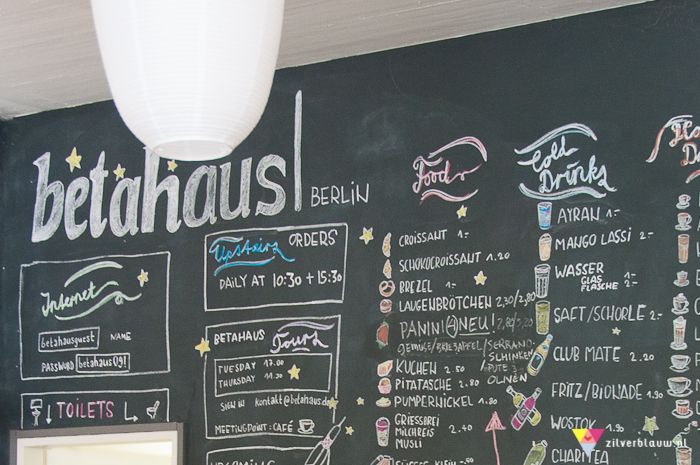 betahaus|
BERLIN
Internet
betahausguest NAME
PASSWORD betahaus09!
TOILETS
Upstairs ORDERS
DAILY AT 10:30 + 15:30
BETAHAUS Tours
TUESDAY 17.00
THURSDAY 11.30
SIGN IN kontakt@betahaus.de
MEETINGPOINT: CAFÉ
UPCOMING
Food
CROISSANT 1.-
SCHOKOCROISSANT 1.20
BREZEL 1.-
LAUGENBRÖTCHEN 2,30/2,80
PANINI(4)NEU! 2,80/3,20
GEMÜSE/BRIE+APFEL/SERRANO-
SCHINKEN
PUTE
OLIVEN
KUCHEN 2.50
PITATASCHE 2.80
PUMPERNICKEL 1.80
GRIESSBREI
MILCHREIS 2.40
MÜSLI
Cold
Drinks
AYRAN 1.-
MANGO LASSI 2.-
WASSER
GLAS 1.-
FLASCHE 2.-
SAFT/SCHORLE 2.-
CLUB MATE 2.20
FRITZ/BIONADE 1.90
WOSTOK
CHARITEA
zilverblauw.nl